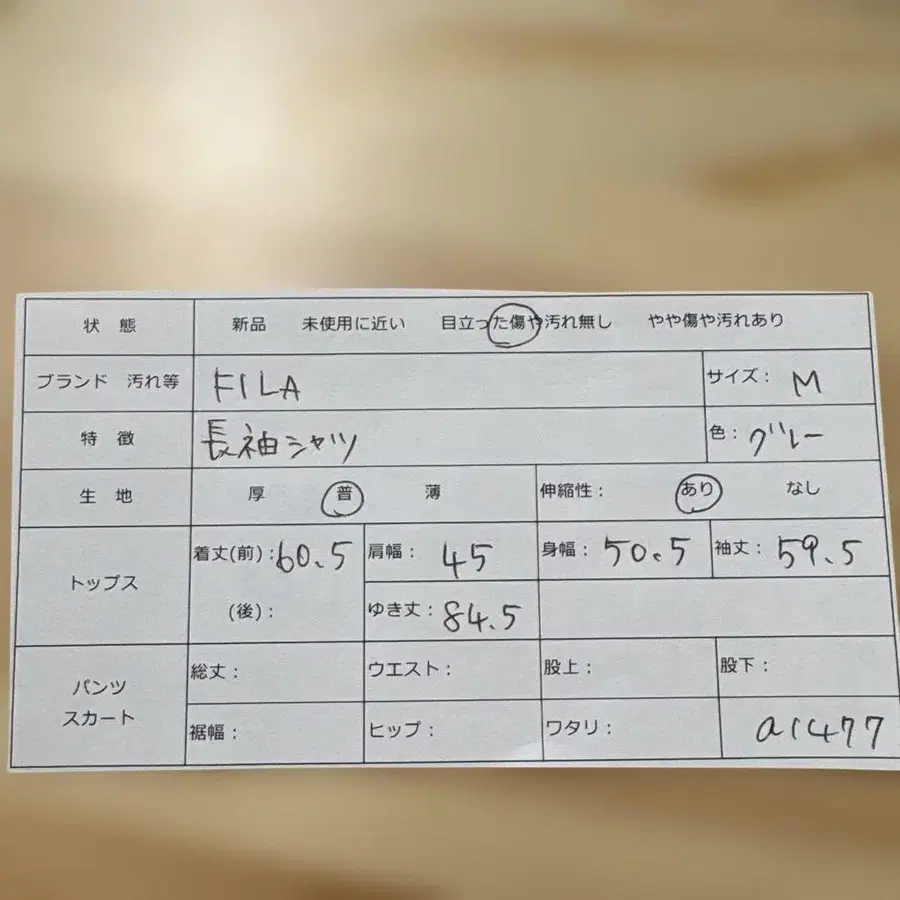 状 態 新品 未使用に近い 目立った傷や汚れ無し やや傷や汚れあり
ブランド 汚れ等 FILA サイズ： M
特 徴 長袖シャツ 色： グレー
生 地 厚 普 薄 伸縮性： あり なし
トップス 着丈(前)：60.5 肩幅： 45 身幅： 50.5 袖丈： 59.5
(後)： ゆき丈： 84.5
パンツ スカート 総丈： ウエスト： 股上： 股下：
裾幅： ヒップ： ワタリ： a1477